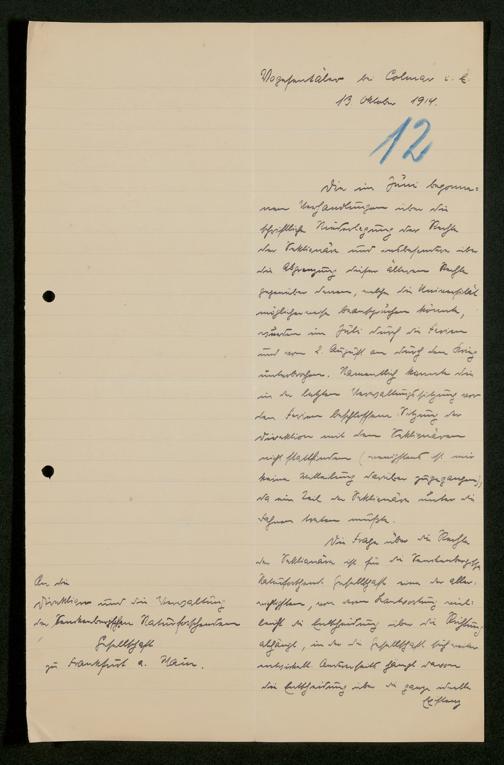 Vogesentäler bei Colmar i. E.
13 Oktober 1914.
12
Die im Juni begonne-
nen Verhandlungen über die
schriftliche Niederlegung der Rechte
der Sektionäre und insbesondere über
die Abgrenzung dieser älteren Rechte
gegenüber denen, welche die Universität
möglicherweise beanspruchen könnte,
wurden im Juli durch die Ferien
und vom 2. August an durch den Krieg
unterbrochen. Namentlich konnte die
in der letzten Verwaltungssitzung vor
den Ferien beschlossene Sitzung der
Direktion mit den Sektionären
nicht stattfinden (wenigstens ist mir
keine Mitteilung darüber zugegangen),
da ein Teil der Sektionäre unter die
Fahnen treten mußte.
Die Frage über die Rechte
der Sektionäre ist für die Senckenbergische
Naturforschende Gesellschaft eine der aller-
wichtigsten, von deren Beantwortung viel-
leicht die Entscheidung über die Richtung
abhängt, in der die Gesellschaft sich weiter
entwickelt. Andernfalls hängt davon
die Entscheidung über die ganze ideelle
Existenz
An die
Direktion und die Verwaltung
der Senckenbergischen Naturforschenden
Gesellschaft
zu Frankfurt a. Main.